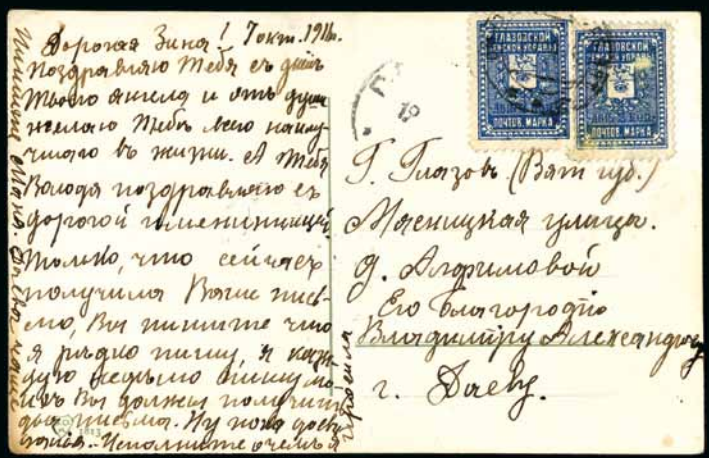 Дорогая Зина! 7 окт. 1916г.
Поздравляю Тебя съ днемъ
Твоего ангела и отъ души
желаю Тебѣ всего наилу-
чшаго въ жизни. А Тебя
Володя поздравляю съ
дорогой именинницей.
Только, что сейчасъ
получила Ваше пись-
мо, Вы пишите что
я рѣдко пишу, я каж
дую недѣлю пишу
Вы должны получить
два письма. Ну пока
Исполните о чемъ я
Пишите
1813
ГЛАЗОВСКОЙ
ЗЕМСКОЙ УПРАВЫ
ПОЧТОВ. МАРКА
ГЛАЗОВСКОЙ
ЗЕМСКОЙ УПРАВЫ
ПОЧТОВ. МАРКА
19
Г. Глазовъ. (Вят губ.)
Мясницкая улица.
д. Анфимовой
Его Благородію
Владиміру Александр
г. Даеву.